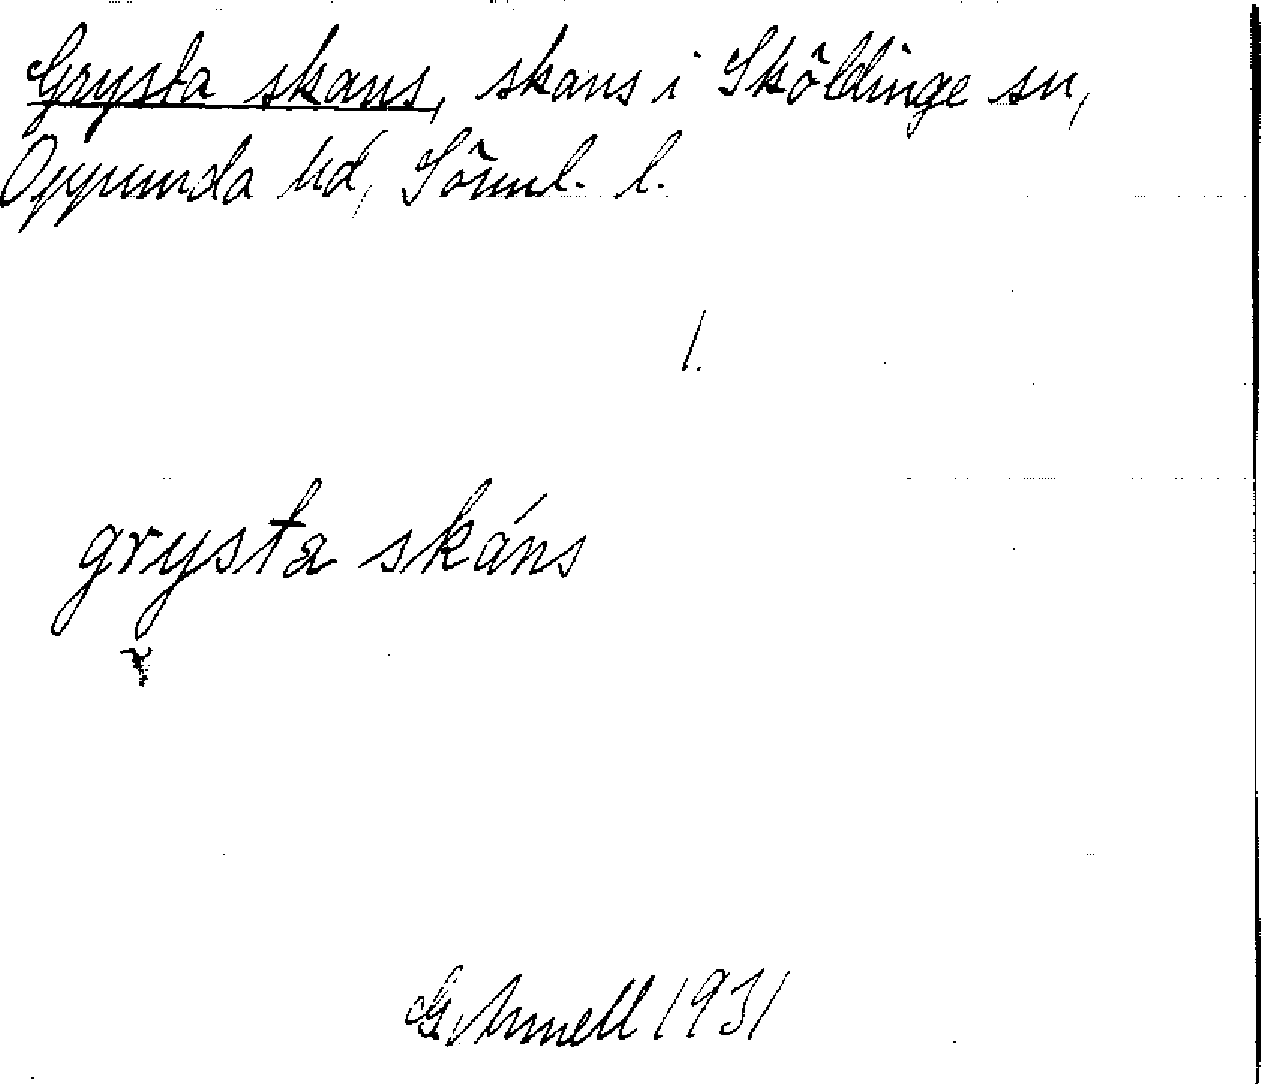 Grysta skans, skans i Sköldinge sn,
Oppunda hd, Sörml. l.
1.
grysta skáns
G. Armell 1931